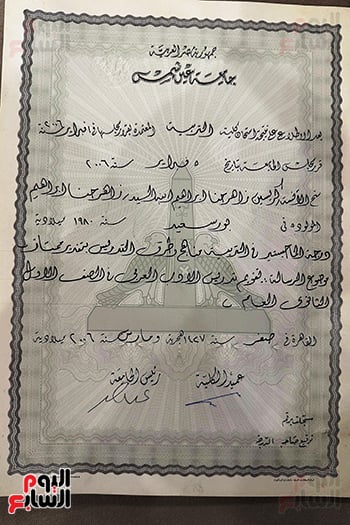 جمهورية مصر العربية
جامعة عين شمس
بعد الاطلاع على نتيجة امتحان كلية التربية المعتمدة بقرار مجلسها في فبراير سنة ٢٠٠٦
قرر مجلس الجامعة بتاريخ ٥ فبراير سنة ٢٠٠٦
منح الآنسة زاهر حنا ابراهيم السيد/ زاهر حنا ابراهيم
المولودة في بورسعيد سنة ١٩٨٠ ميلادية
درجة الماجستير في التربية مناهج وطرق التدريس بتقدير ممتاز
موضوع الرسالة: تقويم تدريس الأدب العربي في الصف الأول
الثانوي العام
القاهرة في صفر سنة ١٤٢٧ هجرية و مارس سنة ٢٠٠٦ ميلادية
عميد الكلية رئيس الجامعة
سجلت برقم
توقيع صاحب الشهادة
اليوم السابع
اليوم السابع